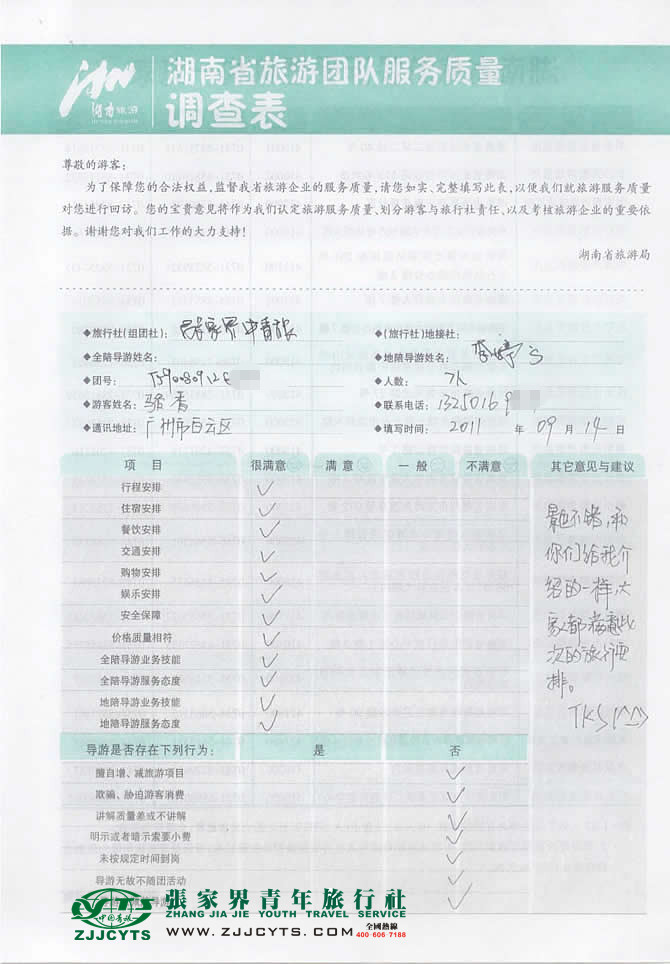 湖南旅游
湖南省旅游团队服务质量
调查表
尊敬的游客：
为了保障您的合法权益,监督我省旅游企业的服务质量,请您如实、完整填写此表,以便我们就旅游服务质量
对您进行回访。您的宝贵意见将作为我们认定旅游服务质量、划分游客与旅行社责任、以及考核旅游企业的重要依
据。谢谢您对我们工作的大力支持!
湖南省旅游局
◆旅行社(组团社)： 张家界中青旅 ◆(旅行社)地接社：
◆全陪导游姓名： ◆地陪导游姓名：
◆团号： ◆人数： 7人
◆游客姓名： 骆香 ◆联系电话： 13250169
◆通讯地址： 广州市白云区 ◆填写时间： 2011 年 09 月 14 日
项 目 很满意 满 意 一 般 不满意 其它意见与建议
行程安排 ✓
住宿安排 ✓
餐饮安排 ✓
交通安排 ✓
购物安排 ✓
娱乐安排 ✓
安全保障 ✓
价格质量相符 ✓
全陪导游业务技能 ✓
全陪导游服务态度 ✓
地陪导游业务技能 ✓
地陪导游服务态度 ✓
景色不错,和
你们给我介
绍的一样,大
家都满意此
次的旅行安
排。
TKS!^_^
导游是否存在下列行为： 是 否
擅自增、减旅游项目 ✓
欺骗、胁迫游客消费 ✓
讲解质量差或不讲解 ✓
明示或者暗示索要小费 ✓
未按规定时间到岗 ✓
导游无故不随团活动 ✓
CYTS
中国青旅
ZJJCYTS
張家界青年旅行社
ZHANG JIA JIE YOUTH TRAVEL SERVICE
www.ZJJCYTS.com
全國熱線
400-606-7186